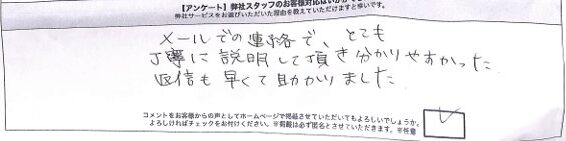 【アンケート】弊社スタッフのお客様対応はいかが
弊社サービスをお選びいただいた理由を教えていただけますと幸いです。
メールでの連絡で、とても
丁寧に説明して頂き分かりやすかった
返信も早くて助かりました
コメントをお客様からの声としてホームページで掲載させていただいてもよろしいでしょうか。
よろしければチェックをお付けください。※掲載は必ず匿名とさせていただきます。※任意